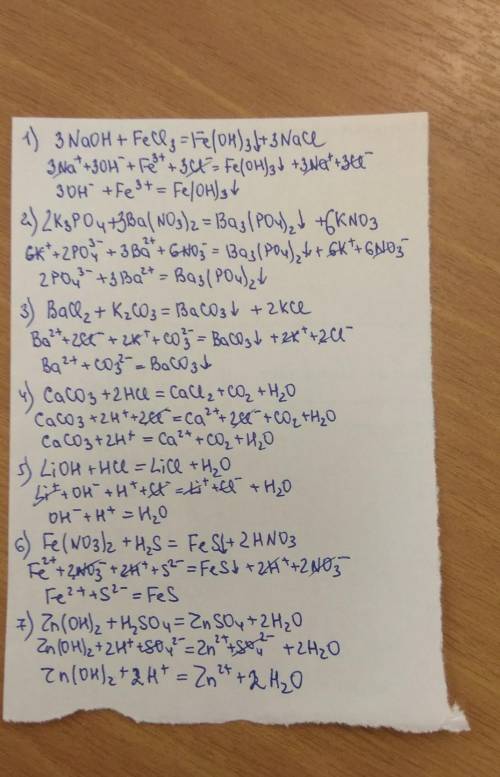 1) 3NaOH + FeCl₃ = Fe(OH)₃↓ + 3NaCl
3Na⁺ + 3OH⁻ + Fe³⁺ + 3Cl⁻ = Fe(OH)₃↓ + 3Na⁺ + 3Cl⁻
3OH⁻ + Fe³⁺ = Fe(OH)₃↓
2) 2K₃PO₄ + 3Ba(NO₃)₂ = Ba₃(PO₄)₂↓ + 6KNO₃
6K⁺ + 2PO₄³⁻ + 3Ba²⁺ + 6NO₃⁻ = Ba₃(PO₄)₂↓ + 6K⁺ + 6NO₃⁻
2PO₄³⁻ + 3Ba²⁺ = Ba₃(PO₄)₂↓
3) BaCl₂ + K₂CO₃ = BaCO₃↓ + 2KCl
Ba²⁺ + 2Cl⁻ + 2K⁺ + CO₃²⁻ = BaCO₃↓ + 2K⁺ + 2Cl⁻
Ba²⁺ + CO₃²⁻ = BaCO₃↓
4) CaCO₃ + 2HCl = CaCl₂ + CO₂ + H₂O
CaCO₃ + 2H⁺ + 2Cl⁻ = Ca²⁺ + 2Cl⁻ + CO₂ + H₂O
CaCO₃ + 2H⁺ = Ca²⁺ + CO₂ + H₂O
5) LiOH + HCl = LiCl + H₂O
Li⁺ + OH⁻ + H⁺ + Cl⁻ = Li⁺ + Cl⁻ + H₂O
OH⁻ + H⁺ = H₂O
6) Fe(NO₃)₂ + H₂S = FeS↓ + 2HNO₃
Fe²⁺ + 2NO₃⁻ + 2H⁺ + S²⁻ = FeS↓ + 2H⁺ + 2NO₃⁻
Fe²⁺ + S²⁻ = FeS
7) Zn(OH)₂ + H₂SO₄ = ZnSO₄ + 2H₂O
Zn(OH)₂ + 2H⁺ + SO₄²⁻ = Zn²⁺ + SO₄²⁻ + 2H₂O
Zn(OH)₂ + 2H⁺ = Zn²⁺ + 2H₂O